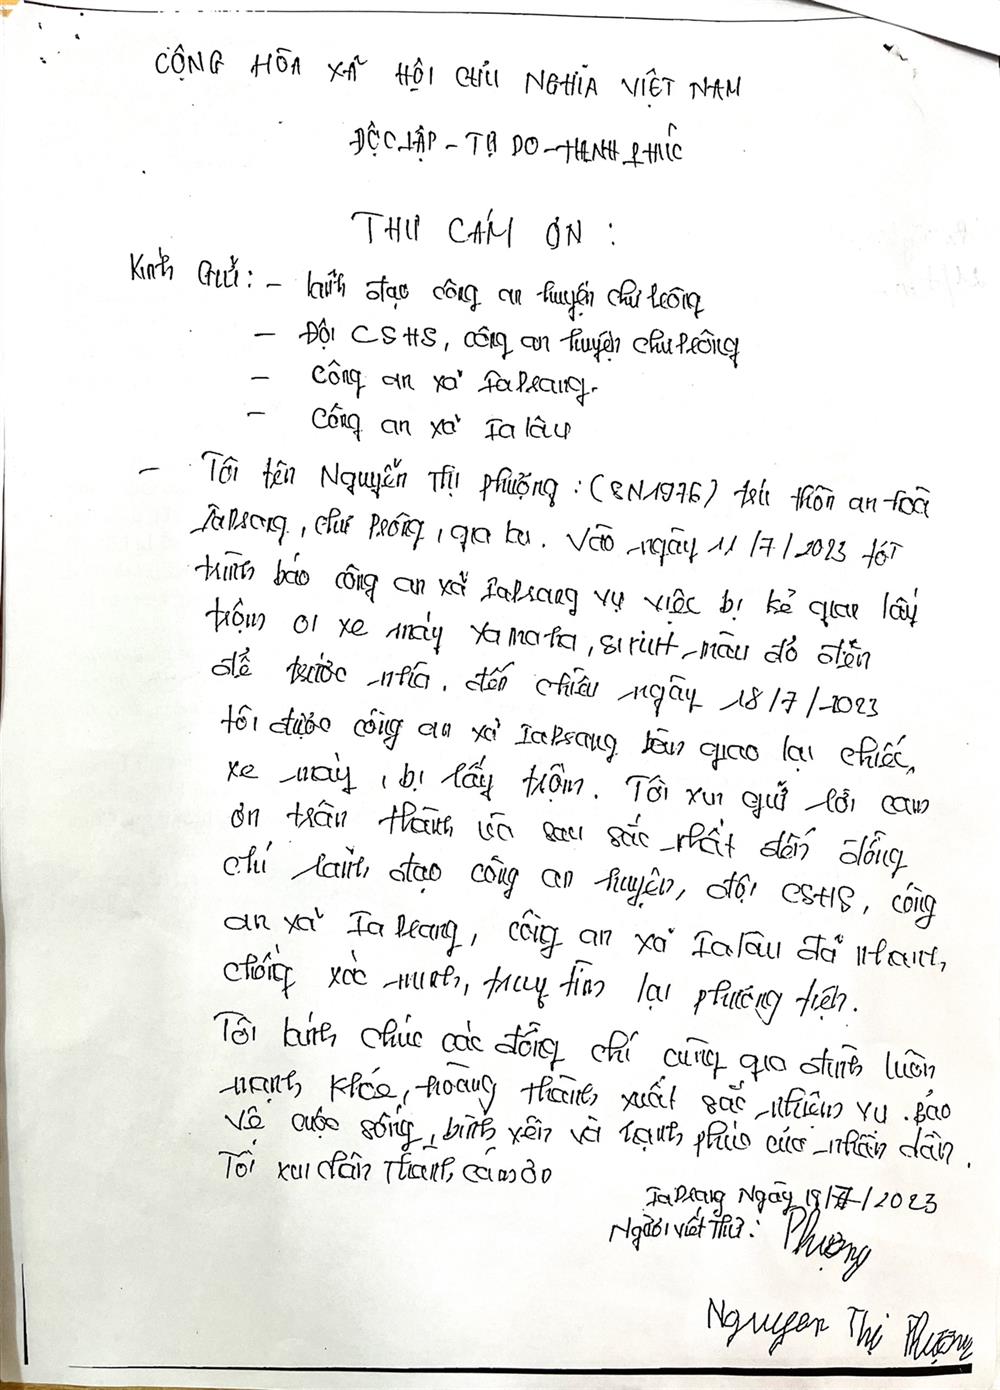 CỘNG HÒA XÃ HỘI CHỦ NGHĨA VIỆT NAM
ĐỘC LẬP - TỰ DO - HẠNH PHÚC
THƯ CÁM ƠN :
Kính Gửi : - lãnh đạo công an huyện chư Prông
- Đội CSHS, công an huyện chư Prông
- Công an xã IaPsang.
- Công an xã Ia lâu
- Tôi tên Nguyễn Thị Phượng : (SN1976) trú thôn an hoà
IaPsang, chư Prông, gia lai. Vào ngày 11/7/2023 tôi
trình báo công an xã IaPsang vụ việc bị kẻ gian lấy
trộm 01 xe máy yamaha, sirius màu đỏ đen
để trước nhà. đến chiều ngày 18/7/2023
tôi được công an xã IaPsang bàn giao lại chiếc
xe máy, bị lấy trộm. Tôi xin gửi lời cảm
ơn trân thành và sâu sắc nhất đến đồng
chí lãnh đạo công an huyện, đội CSHS, công
an xã IaPsang, công an xã Ialâu đã nhanh
chóng xác minh, truy tìm lại phương tiện.
Tôi kính chúc các đồng chí cùng gia đình luôn
mạnh khỏe, hoàng thành xuất sắc nhiệm vụ. Bảo
vệ cuộc sống, bình yên và hạnh phúc của nhân dân.
Tôi xin chân thành cám ơn
IaPsang Ngày 18/7/2023
Người viết thư : Phượng
Nguyen Thị Phượng